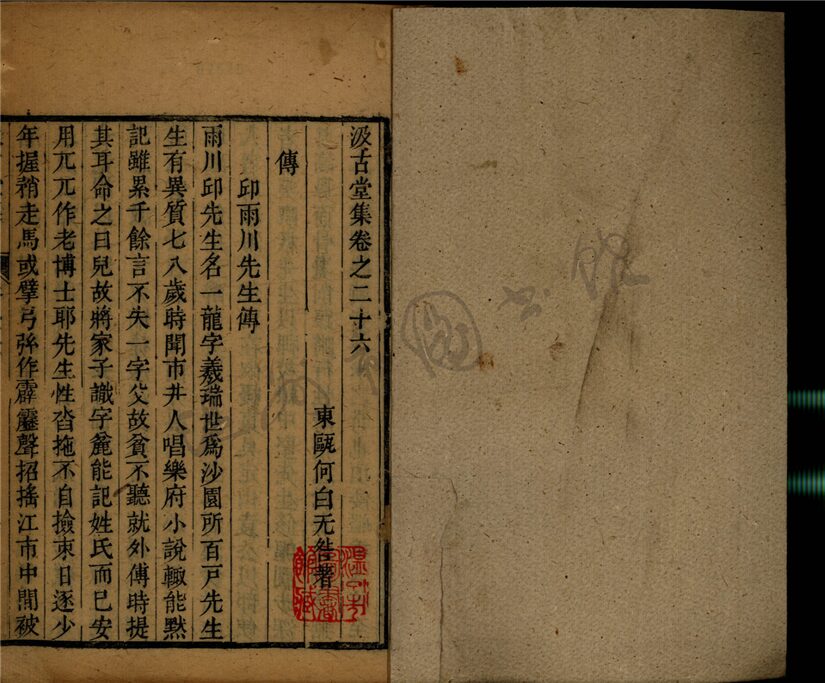 汲古堂集卷之二十六
東甌何白无咎著
傳
邱雨川先生傳
雨川邱先生名一龍字羲瑞世爲沙園所百戸先生
生有異質七八歲時聞市井人唱樂府小說輙能黙
記雖累千餘言不失一字父故貧不聽就外傅時提
其耳命之曰兒故將家子識字麄能記姓氏而已安
用兀兀作老博士耶先生性沓拖不自撿束日逐少
年握矟走馬或擘弓弩作霹靂聲招搖江市中間被
圖書館